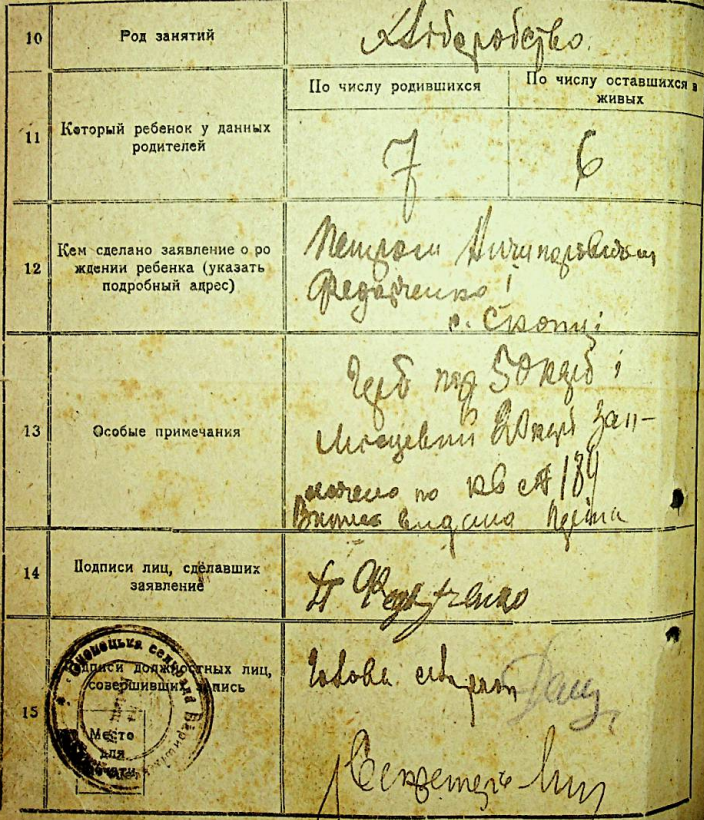 10 Род занятий Хліборобство.
По числу родившихся По числу оставшихся в
живых
11 Который ребенок у данных
родителей
7 6
12 Кем сделано заявление о ро
ждении ребенка (указать
подробный адрес)
Петром Ничипоровичем
Федорченко і
с. Скопці
13 Особые примечания
Герб под 50 коп і
Місцевий 20 коп Зап-
лачено по кв № 189
видана
14 Подписи лиц, сделавших
заявление
П Федорченко
15 Подписи должностных лиц,
совершивших запись
Место
для
печати
Голова сільради
Секретарь